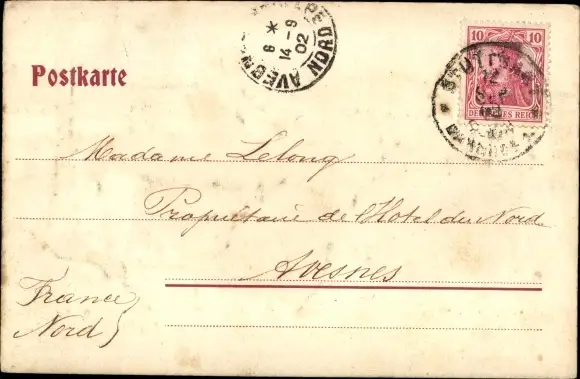 Postkarte
AVESNES
NORD
8 *
14 - 9
02
10 10
DEUTSCHES REICH
12
Madame Lelong
Propriétaire de l'Hotel du Nord
Avesnes
France
Nord